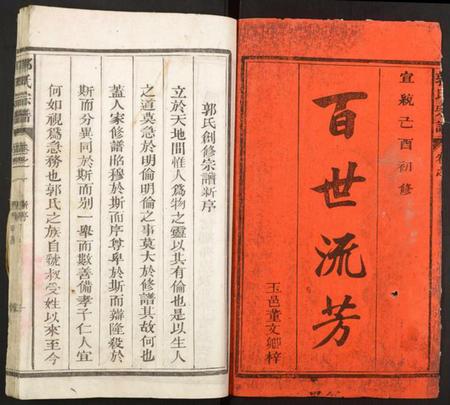 宣統己酉初修
百世流芳
玉邑董文卿梓
郭氏創修宗譜新序
立於天地間惟人爲物之靈以其有倫也是以生人
之道莫急於明倫明倫之事莫大於修譜其故何也
蓋人家修譜昭穆於斯而序尊卑於斯而辯隆殺於
斯而分異同於斯而别一舉而數善備孝子仁人宜
何如視爲急務也郭氏之族自虢叔受姓以來至今
郭氏宗譜